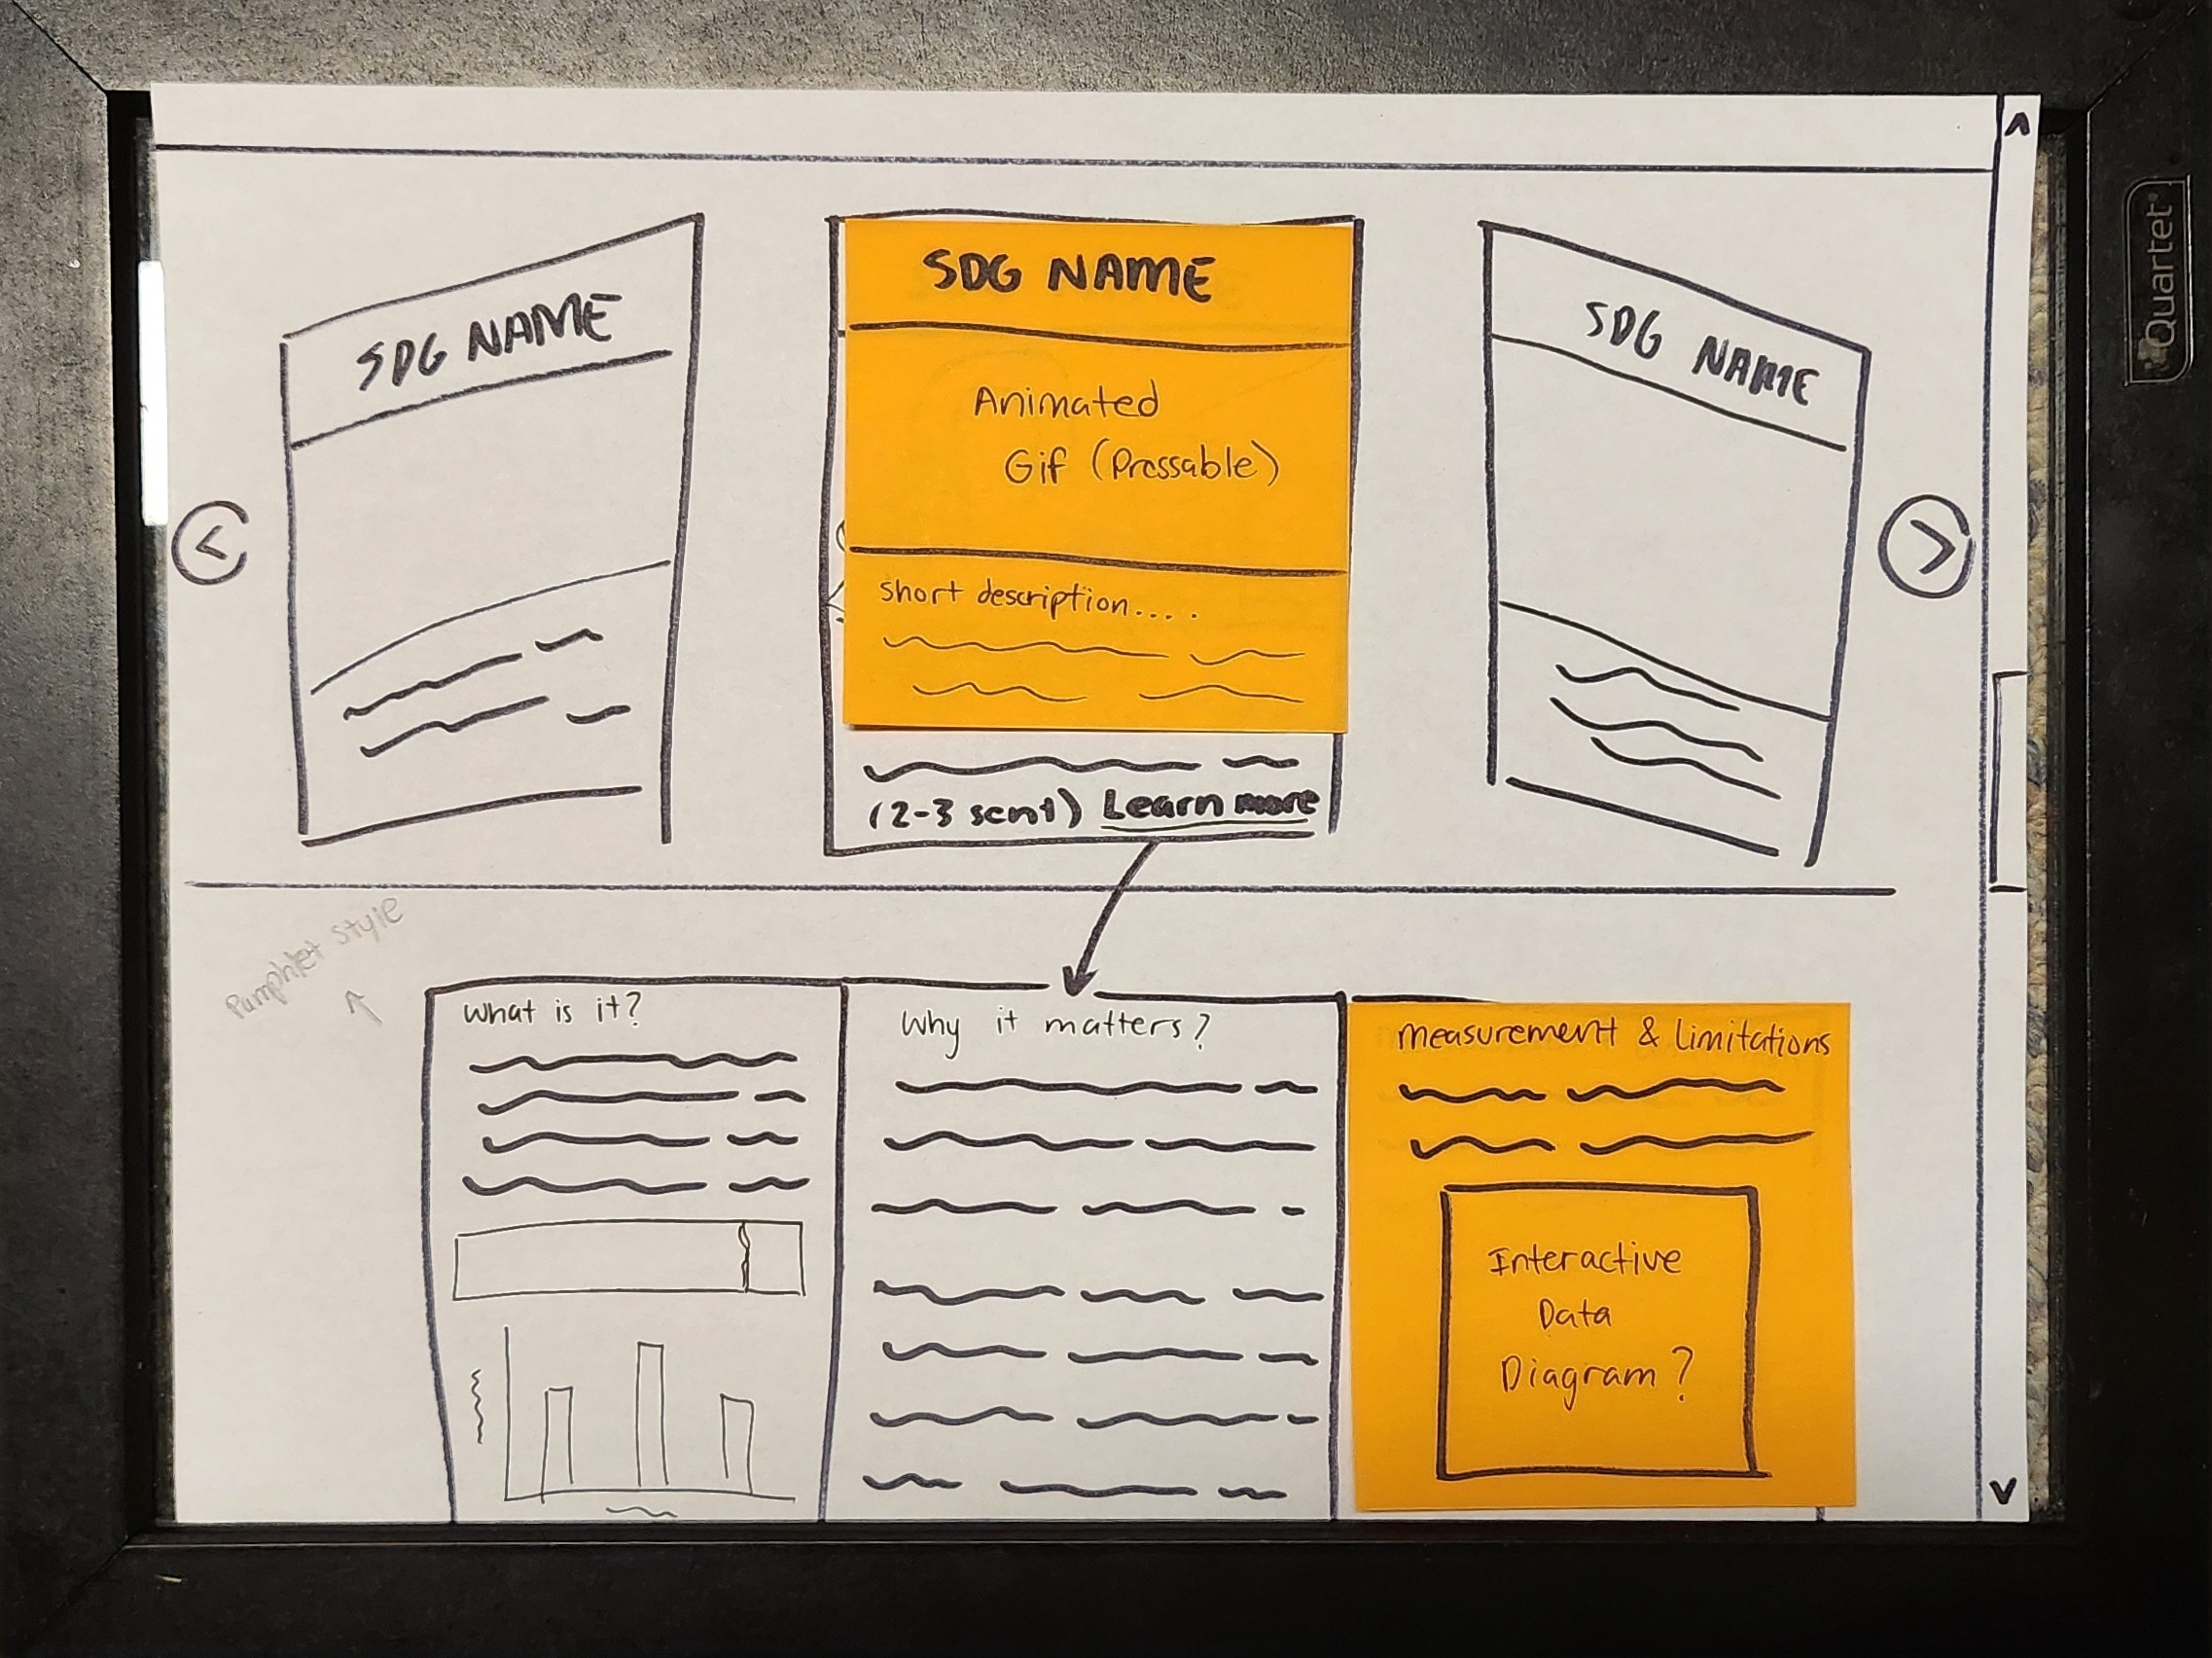 SDG NAME
SDG NAME
SDG NAME
Animated
Gif (Pressable)
short description.....
(2-3 sent) Learn more
Pamphlet Style
What is it?
Why it matters?
Measurement & Limitations
Interactive
Data
Diagram?
Quartet